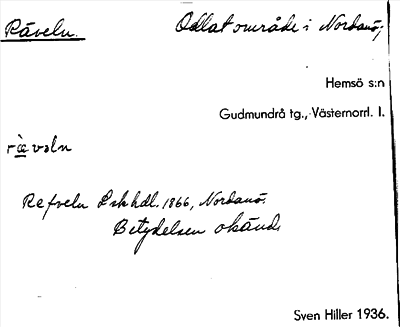 Räveln. Odlat område i Nordanö,
Hemsö s:n
Gudmundrå tg., Västernorrl. l.
ræ̀vəln
Refveln Lskhdl. 1866, Nordanö.
Betydelsen okänd.
Sven Hiller 1936.